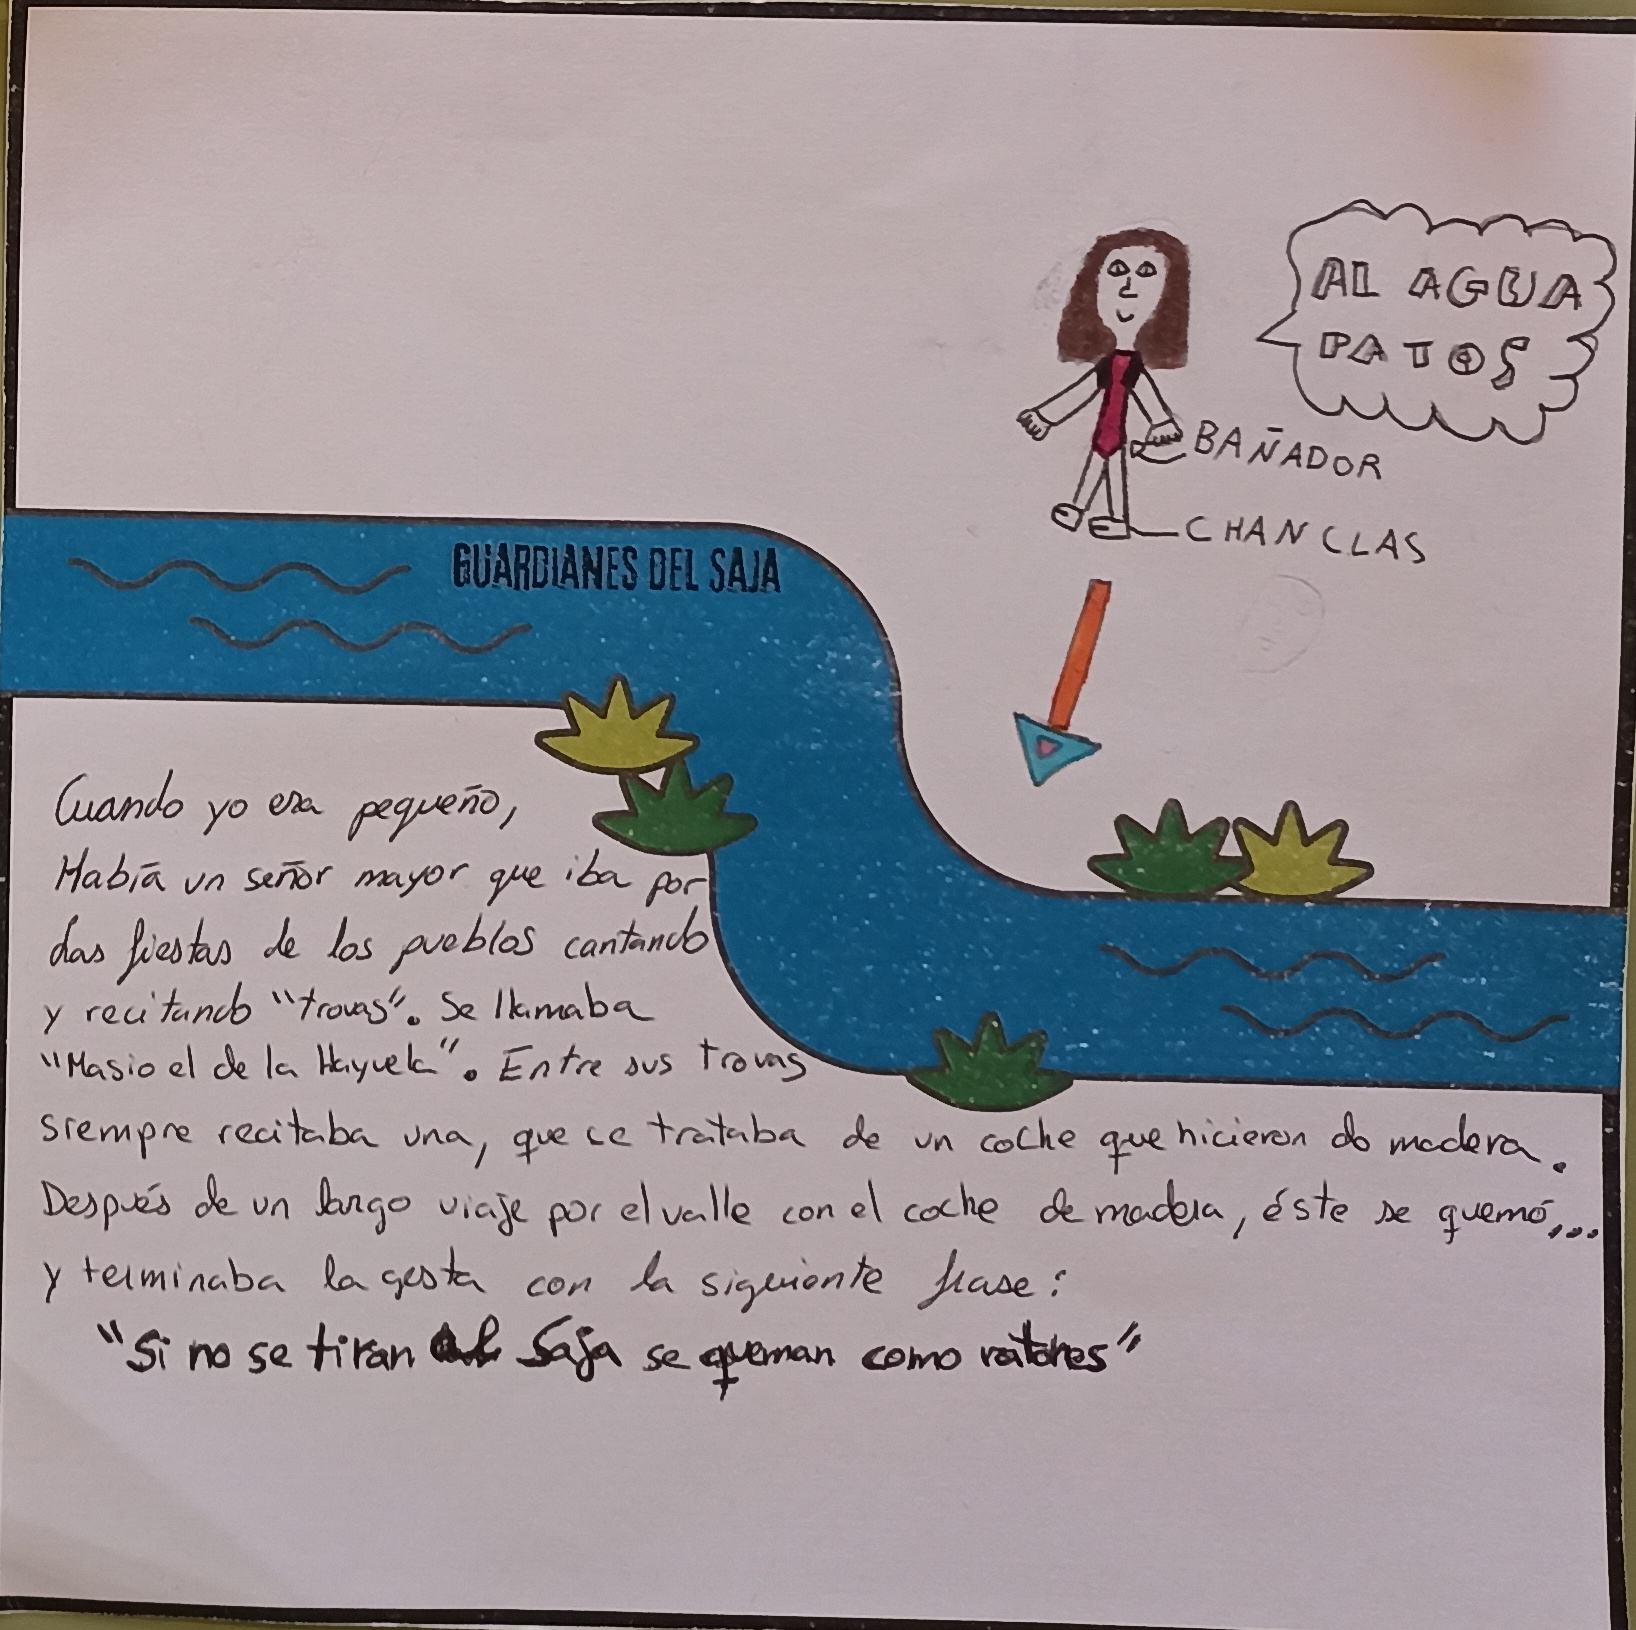 AL AGUA
PATOS
BAÑADOR
CHANCLAS
GUARDIANES DEL SAJA
Cuando yo era pequeño,
Había un señor mayor que iba por
las fiestas de los pueblos cantando
y recitando "trovas". Se llamaba
"Masio el de la Hayuela". Entre sus trovas
siempre recitaba una, que se trataba de un coche que hicieron de madera.
Después de un largo viaje por el valle con el coche de madera, éste se quemó,...
y terminaba la gesta con la siguiente frase:
"Si no se tiran al Saja se queman como ratones"